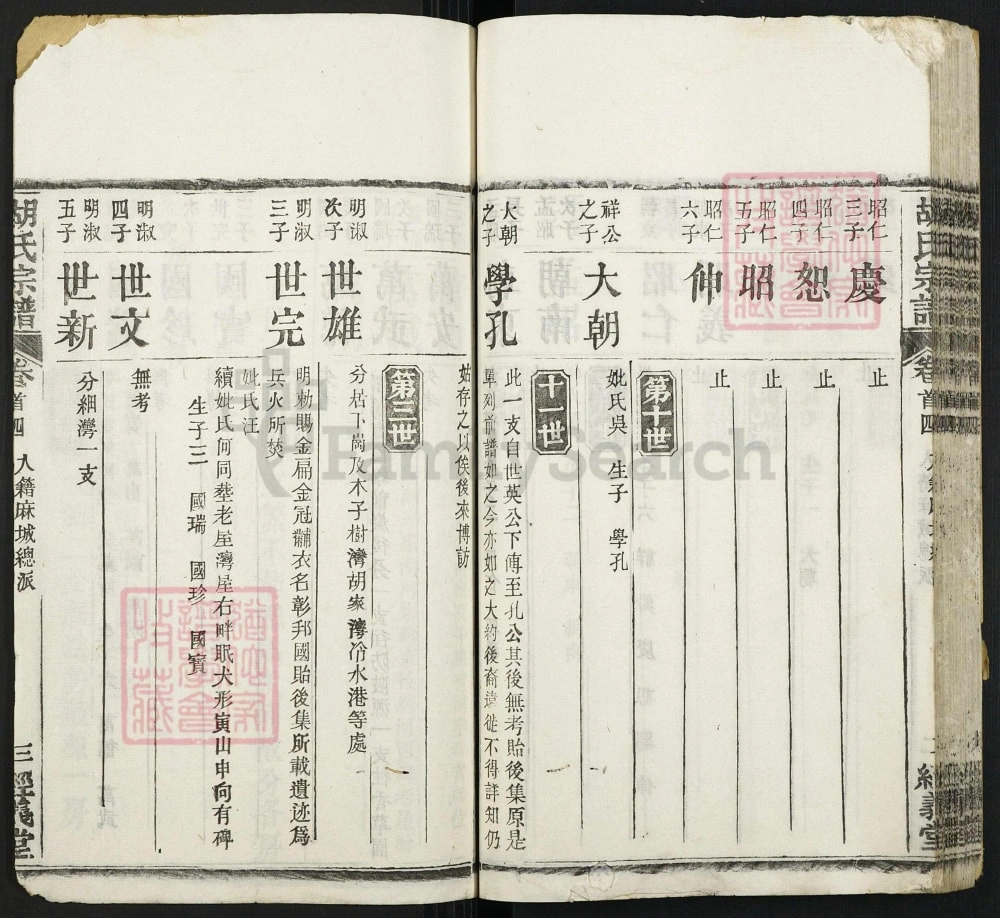 胡氏宗譜
卷首四
入籍麻城總派
二
經義堂
昭仁三子
慶
止
昭仁四子
恕
止
昭仁五子
昭
止
昭仁六子
伸
止
第十世
祥公之子
大朝
妣氏吳 生子 學孔
十一世
大朝之子
學孔
此一支自世英公下傳至孔公其後無考貽後集原是
單列前譜如之今亦如之大約後裔遠徙不得詳知仍
姑存之以俟後來博訪
第二世
明淑次子
世雄
分居下崗及木子樹灣胡家灣冷水港等處
明淑三子
世完
明勑賜金扁金冠黼衣名彰邦國貽後集所載遺迹爲
兵火所焚
妣氏汪
續妣氏何同塟老屋灣屋右畔眠犬形寅山申向有碑
生子三 國瑞 國珍 國寶
明淑四子
世文
無考
明淑五子
世新
分細灣一支
胡氏宗譜
卷首四
入籍麻城總派
三
經義堂
FamilySearch